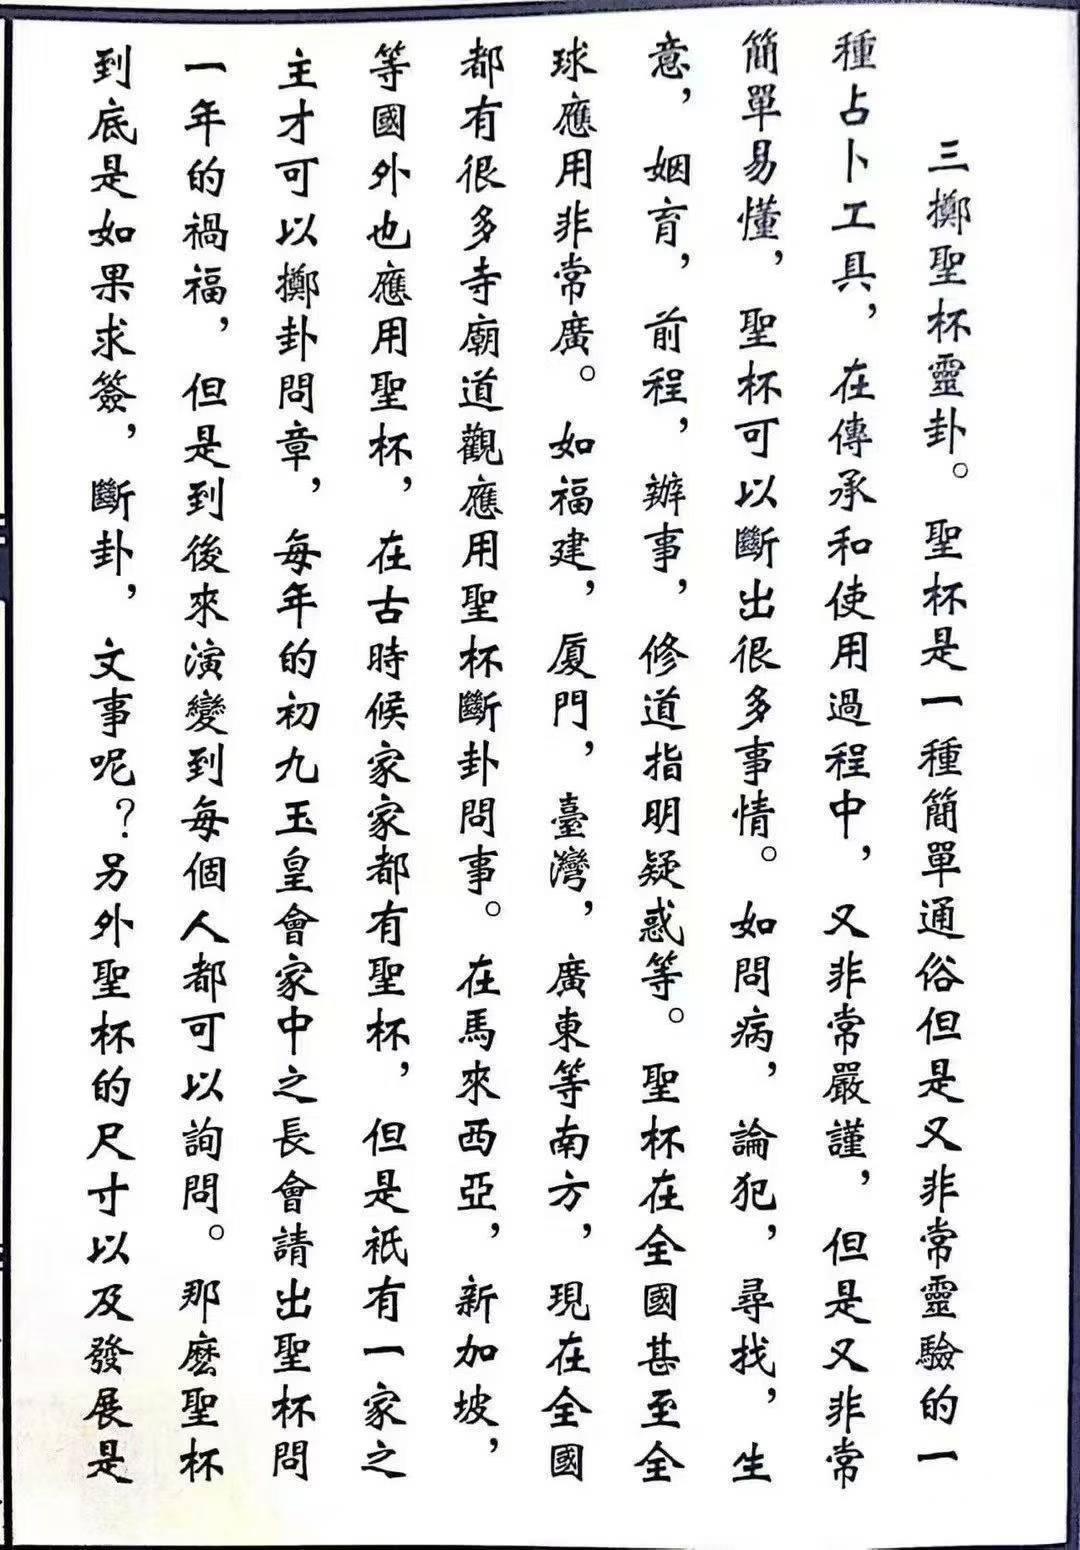 三擲聖杯靈卦。聖杯是一種簡單通俗但是又非常靈驗的一
種占卜工具，在傳承和使用過程中，又非常嚴謹，但是又非常
簡單易懂，聖杯可以斷出很多事情。如問病，論犯，尋找，生
意，姻育，前程，辦事，修道指明疑惑等。聖杯在全國甚至全
球應用非常廣。如福建，厦門，臺灣，廣東等南方，現在全國
都有很多寺廟道觀應用聖杯斷卦問事。在馬來西亞，新加坡，
等國外也應用聖杯，在古時候家家都有聖杯，但是祇有一家之
主才可以擲卦問章，每年的初九玉皇會家中之長會請出聖杯問
一年的禍福，但是到後來演變到每個人都可以詢問。那麼聖杯
到底是如果求簽，斷卦，文事呢？另外聖杯的尺寸以及發展是